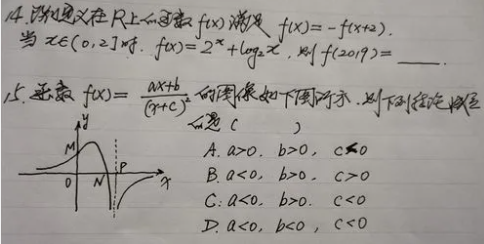 14. 已知定义在R上的函数f(x)满足 f(x)=-f(x+2).
当 x∈(0,2]时. f(x)=2^x+log₂x, 则f(2019)=____.
15. 函数 f(x)= (ax+b)/(x+c)² 的图像如下图所示.则下列结论成立
的是 ( )
A. a>0, b>0, c<0
B. a<0, b>0, c>0
C. a<0, b>0. c<0
D. a<0, b<0, c<0
y
M
P
O
N
x